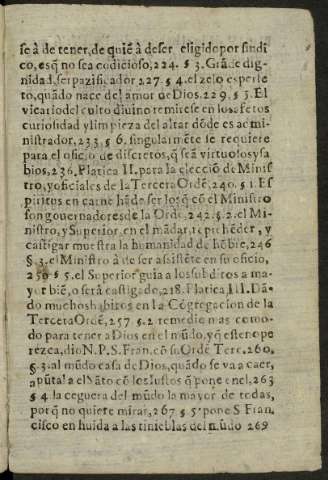 se à de tener, de quiē à deser eligido por sindi
co, es q̄ no sea codicioso, 224. § 3. Grā de dig-
nidad, ser pazificador, 227. § 4. el zelo es perfe
to, quādo nace del amor de Dios. 229. § 5. El
vicario del culto diuino remirese en los afetos
curiosidad y limpieza del altar dōde es ad mi-
nistrador, 233, § 6. singularmēte se requiere
para el oficio de discretos, q̄ seā virtuosos y sa
bios, 236, Platica II. para la elecciō de Minis
tro, y oficiales de la Tercera Ordē, 240. § 1. Es
piritus en carne hā de ser los q̄ cō el Ministro
son gouernadores de la Ordē, 242. §. 2. el Mi-
nistro, y Superior, en el mādar, reprehēder, y
castigar muestra la humanidad de hōbre, 246
§. 3. el Ministro à de ser assistēte en su oficio,
250 § 5. el Superior guia a los subditos a ma-
yor biē, o será castigado, 218. Platica III. Dā-
do muchos habitos en la Cōgregacion de la
Tercera Ordē, 257 §. 2 remedio mas como-
do para tener a Dios en el mūdo, y q̄ este no pe
rezca, dio N. P. S. Fran. cō su Ordē Terc. 260,
§. 3. al mūdo casa de Dios, quādo se va a caer,
apūtala el Sāto cō los Iustos q̄ pone en el, 263
§ 4 la ceguera del mūdo la mayor de todas,
porq̄ no quiere mirar, 267 § 5 pone S Fran
cisco en huida a las tinieblas del mūdo 269